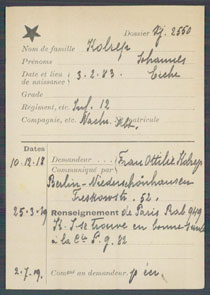 Dossier Zj. 2550
Nom de famille Kolrep
Prénoms Johannes
Date et lieu de naissance: 3.2.83.
Grade
Régiment, etc. Inf. 12
Compagnie, etc. Matricule
Dates
10.12.18 Demandeur Frau Ottilie Kolrep
Communiqué par
Berlin-Niederschönhausen
Treskowstr. 52.
25-3-19 Renseignement via Paris
K. J. se trouve en bonne santé
à la Cie P.g. 22
2-7-19. Comᵒⁿ au demandeur.